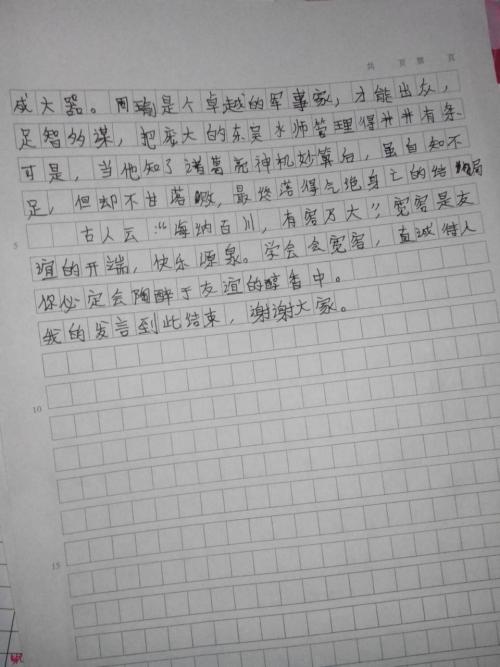 共 页 第 页
成大器。周瑜是个卓越的军事家，才能出众，
足智多谋，把庞大的东吴水师管理得井井有条
可是，当他知了诸葛亮神机妙算后，虽自知不
足，但却不甘落败，最终落得气绝身亡的结局
5
古人云：“海纳百川，有容乃大”，宽容是友
谊的开端，快乐源泉。学会会宽容，真诚待人
你必定会陶醉于友谊的醇香中。
我的发言到此结束，谢谢大家。
10
15